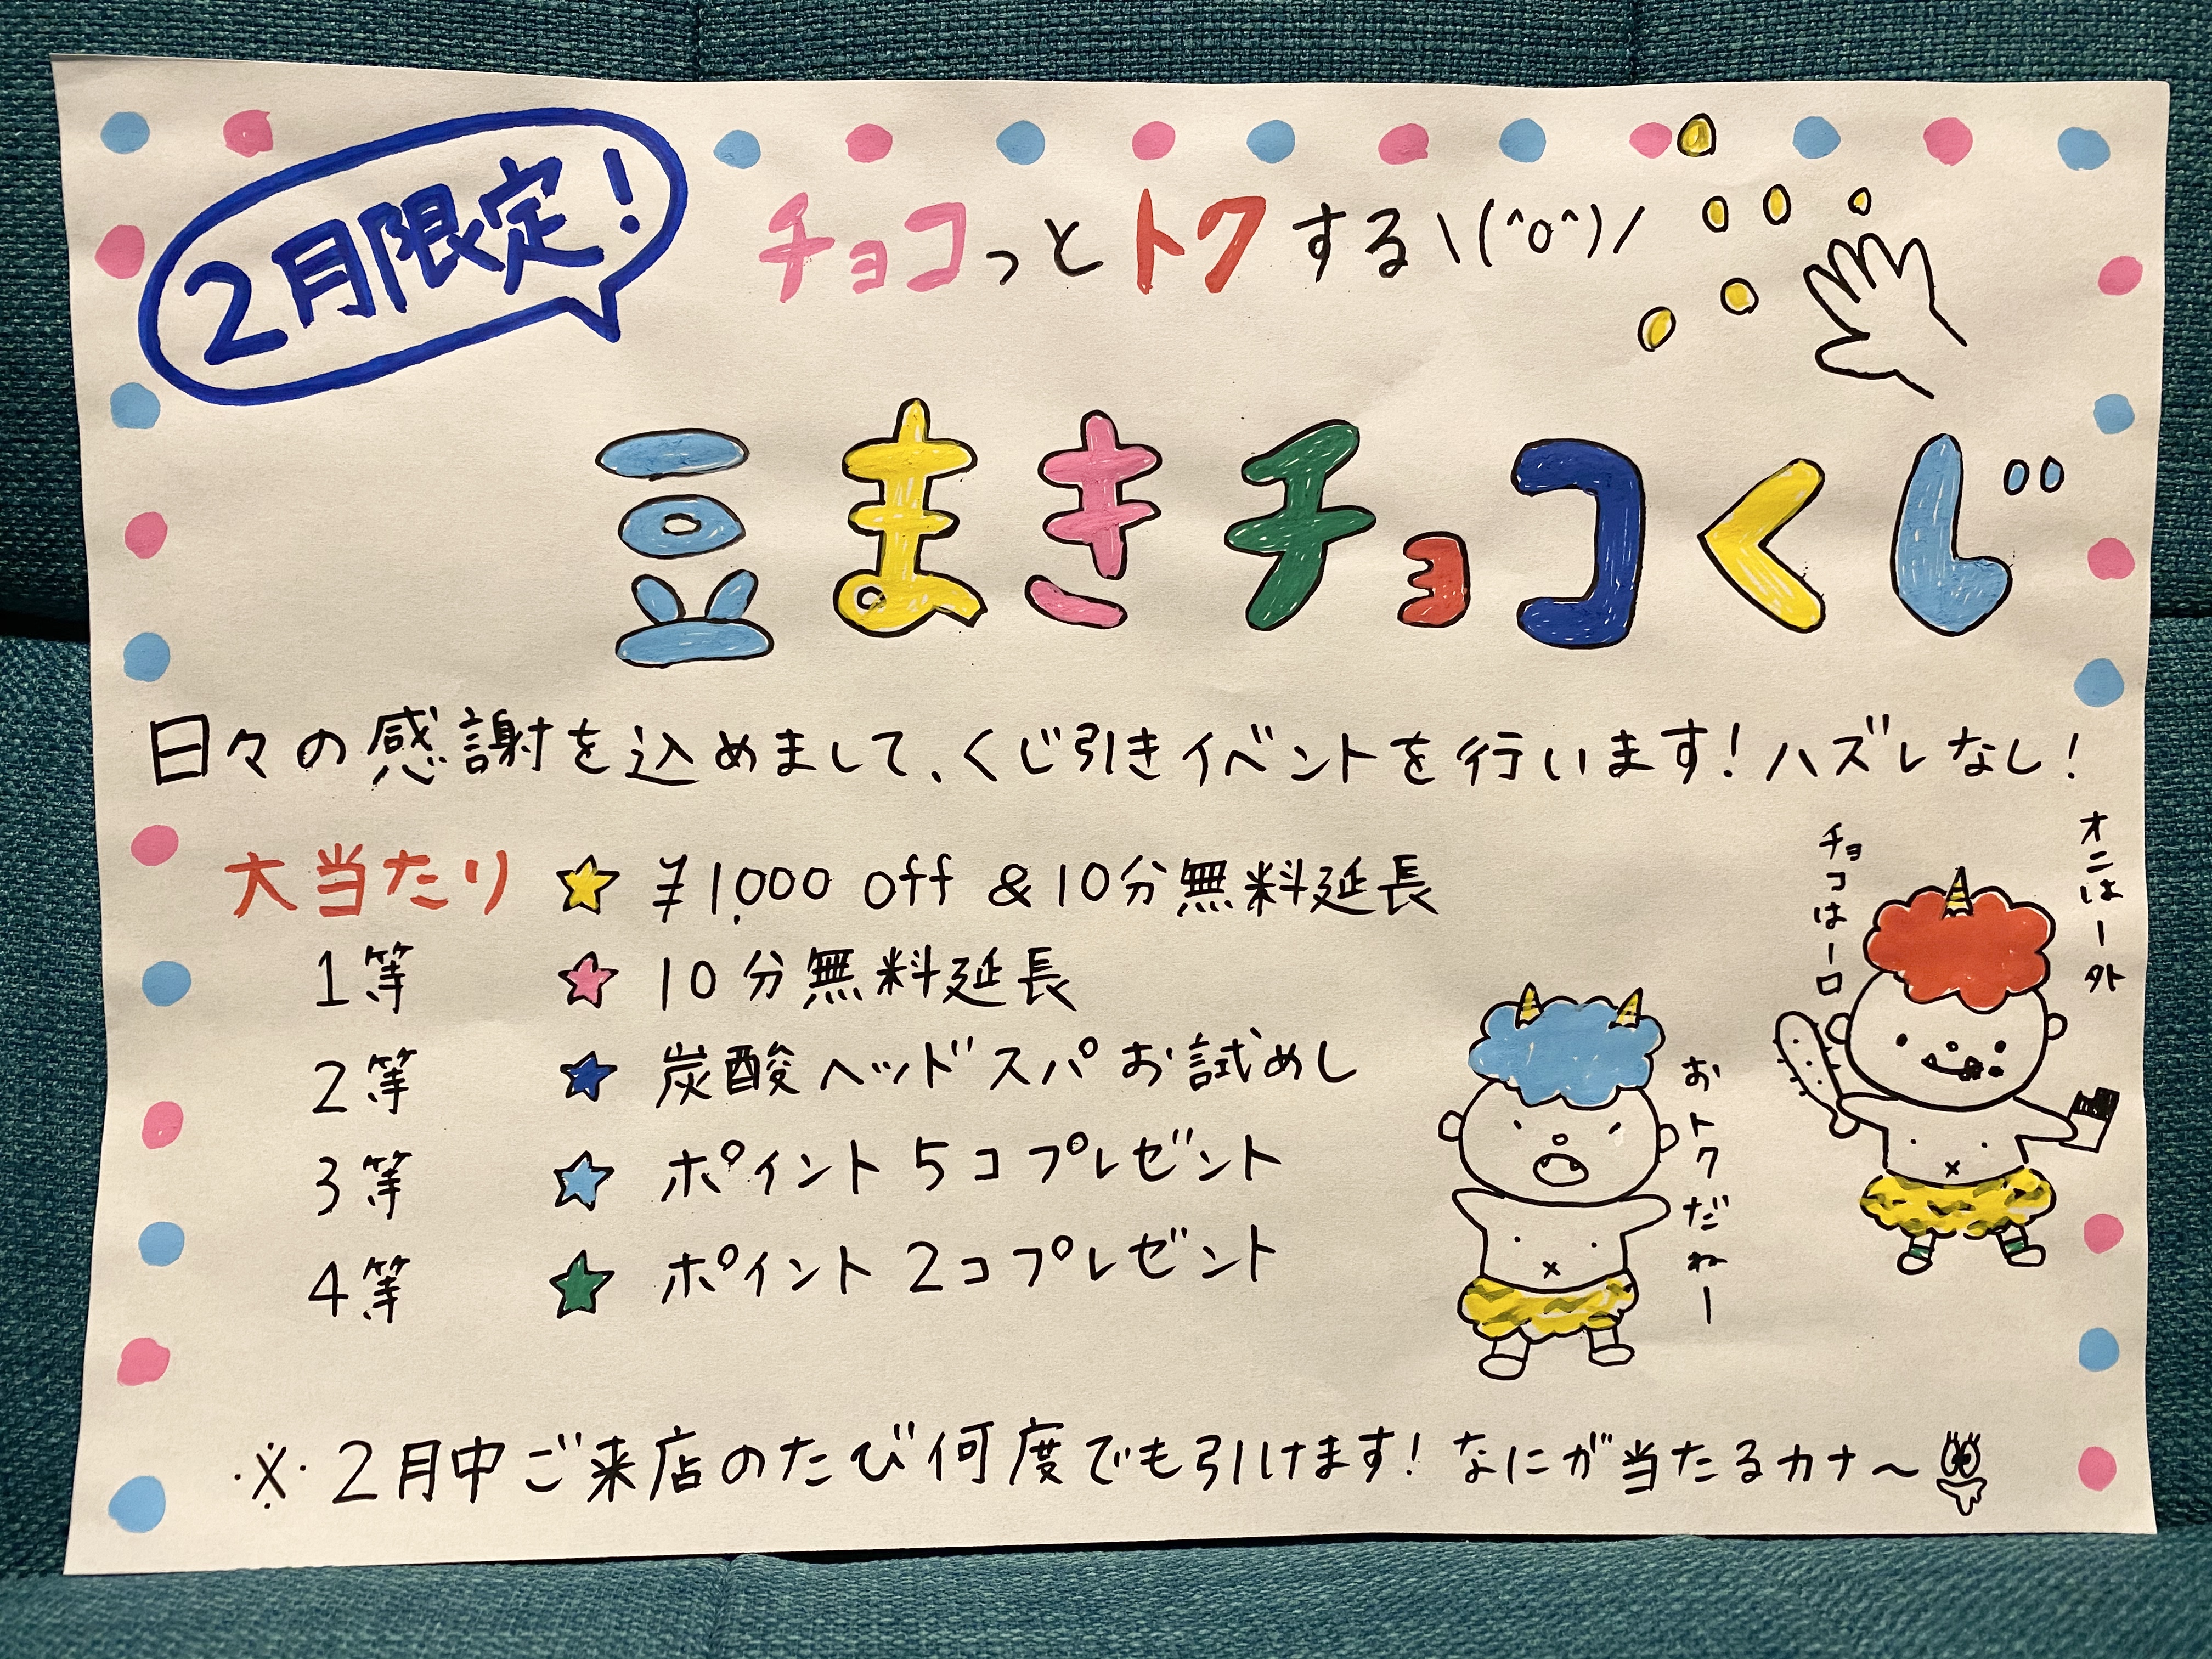 2月限定!
チョコっとトクする\(^o^)/
豆まきチョコくじ
日々の感謝を込めまして、くじ引きイベントを行います!ハズレなし!
大当たり ☆ ¥1,000 off &10分無料延長
1等 ☆ 10分無料延長
2等 ☆ 炭酸ヘッドスパお試めし
3等 ☆ ポイント5コプレゼント
4等 ☆ ポイント2コプレゼント
オニはー外
チョコはー口
おトクだねー
※2月中ご来店のたび何度でも引けます!なにが当たるカナ〜